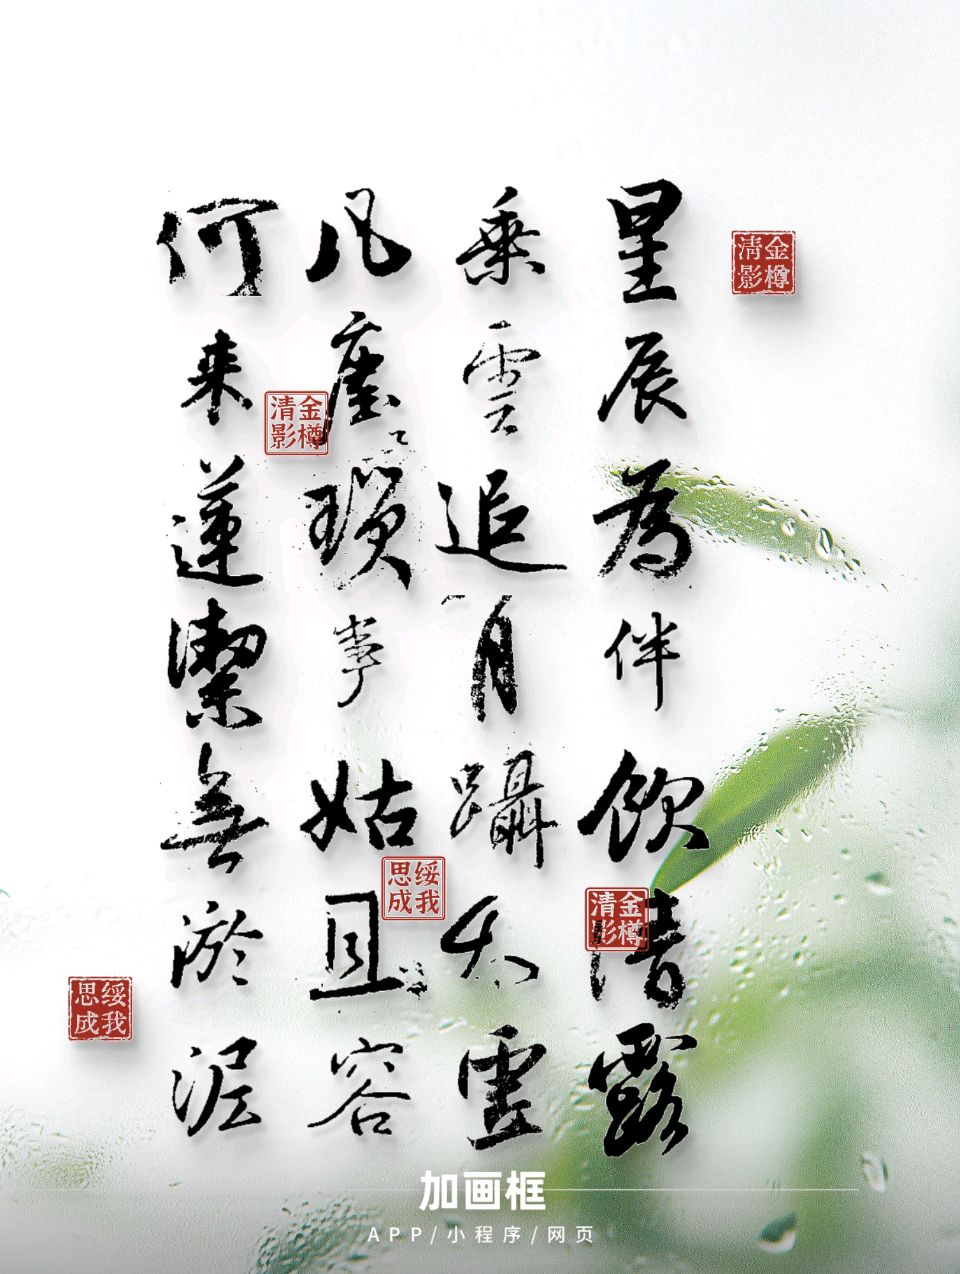 金樽清影
星辰為伴飲清露
金樽清影
乘雲追月躡太虛
凡塵瑣事姑且容
金樽清影
绥我思成
何来蓮潔無淤泥
绥我思成
加画框
APP/小程序/网页